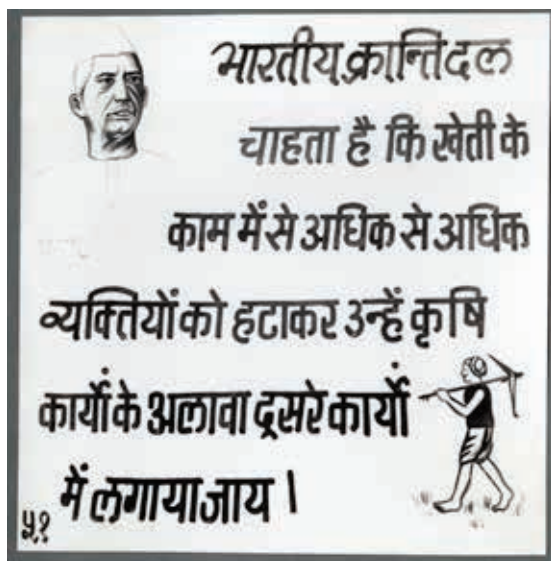 भारतीय क्रान्तिदल
चाहता है कि खेती के
काम में से अधिक से अधिक
व्यक्तियों को हटाकर उन्हें कृषि
कार्यो के अलावा दूसरे कार्यो
में लगाया जाय ।
५१